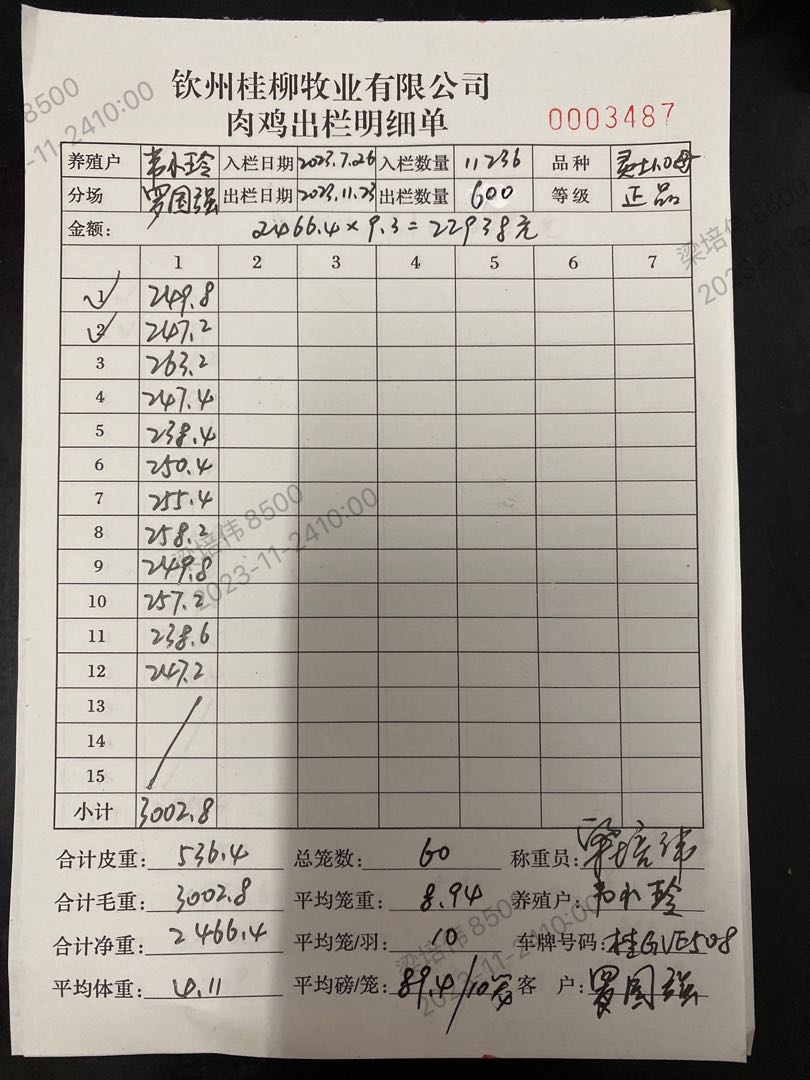 钦州桂柳牧业有限公司
肉鸡出栏明细单
0003487
养殖户 韦小玲 入栏日期 2023.7.26 入栏数量 11236 品种
分场 罗国强 出栏日期 2023.11.23 出栏数量 600 等级 正品
金额: 2466.4×9.3=22938元
1 2 3 4 5 6 7
1 249.8
2 247.2
3 263.2
4 247.4
5 238.4
6 250.4
7 255.4
8 258.2
9 249.8
10 257.2
11 238.6
12 247.2
13
14
15
小计 3002.8
合计皮重: 536.4 总笼数: 60 称重员: 梁培伟
合计毛重: 3002.8 平均笼重: 8.94 养殖户: 韦小玲
合计净重: 2466.4 平均笼/羽: 10 车牌号码: 桂GVE508
平均体重: 4.11 平均磅/笼: 89.4/10笼 客户: 罗国强
梁培伟 8500
2023-11-2410:00
梁培伟 8500
2023-11-2410:00
梁培伟 8500
2023-11-2410:00
8500
11-2410:00